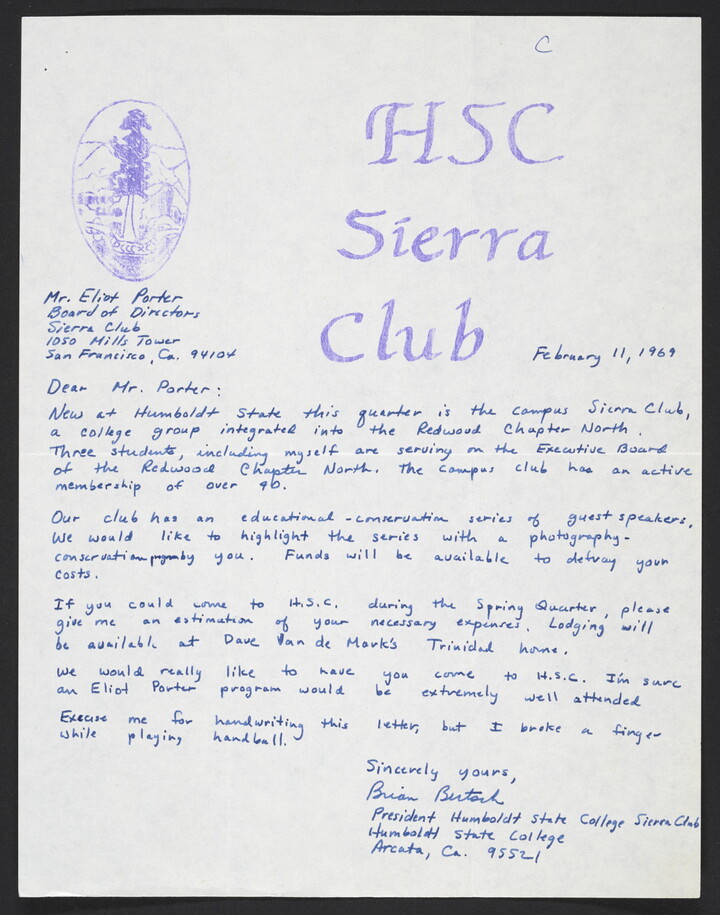 C
HSC
Sierra
Club
Mr. Eliot Porter
Board of Directors
Sierra Club
1050 Mills Tower
San Francisco, Ca. 94104
February 11, 1969
Dear Mr. Porter:
New at Humboldt State this quarter is the campus Sierra Club,
a college group integrated into the Redwood Chapter North.
Three students, including myself are serving on the Executive Board
of the Redwood Chapter North. The campus club has an active
membership of over 90.
Our club has an educational-conservation series of guest speakers.
We would like to highlight the series with a photography-
conservation by you. Funds will be available to defray your
costs.
If you could come to H.S.C. during the Spring Quarter, please
give me an estimation of your necessary expenses. Lodging will
be available at Dave Van de Mark's Trinidad home.
We would really like to have you come to H.S.C. I'm sure
an Eliot Porter program would be extremely well attended
Excuse me for handwriting this letter, but I broke a finger
while playing handball.
Sincerely yours,
Brian
President Humboldt State College Sierra Club
Humboldt State College
Arcata, Ca. 95521